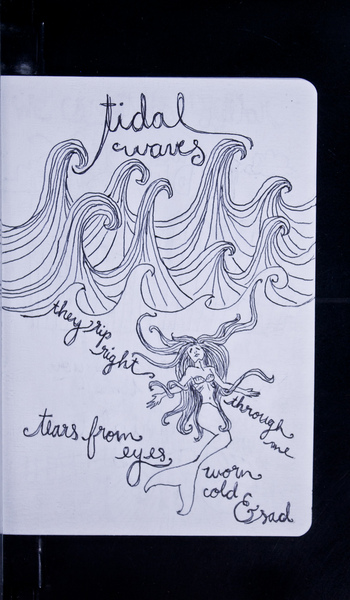 tidal
waves
they rip
right
through
me
tears from
eyes
worn
cold
& sad